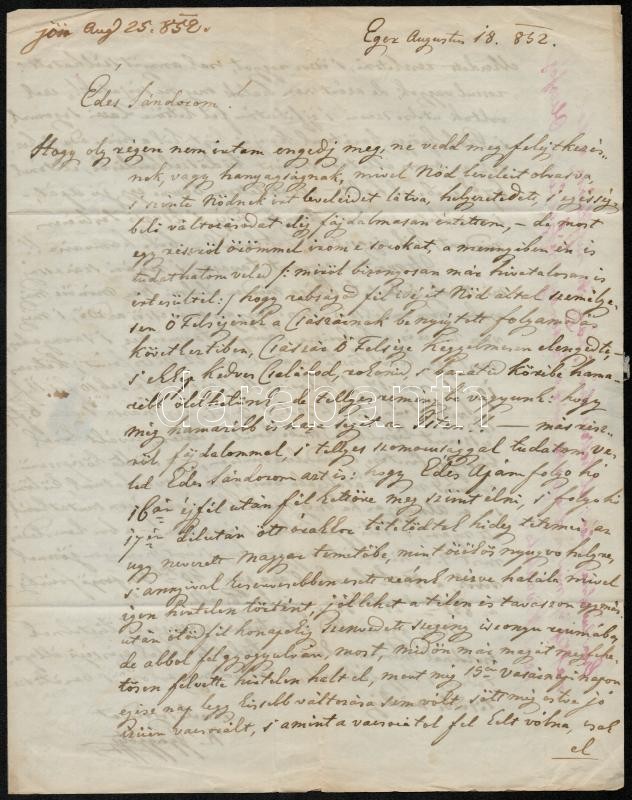 jön Aug 25. 852.
Eger Augustus 18. 852.
Édes Sándorom!
Hogy oly régen nem irtam engedj meg, ne vedd megfelejtkezés-
nek, vagy hanyagságnak, mivel Nőd leveleit olvasva,
s szinte Nődnek irt leveleidet látva, helyzetedet, s egésség-
beli változásodat elég fájdalmasan értettem, – de most
egy részről örömmel irom e sorokat, a mennyiben én is
tudathatom veled /: miről bizonyosan már hivatalosan is
értesültél :/ hogy rabságod fél idejét Nőd által személye-
sen Ő Felségének a Császárnak benyujtott folyamodás
következtiben, Császár Ő Felsége kegyelmesen elengedte,
s ekép kedves Családod, rokonid s barátid körébe hama-
rább ölelhetünk, de tellyes reményben vagyunk: hogy
még hamarébb is haza segít a Isten! – más rész-
ről fájdalommal, s tellyes szomorusággal tudatom ve-
led Édes Sándorom azt is: hogy Édes Apám folyó hó
16án éjfél után fél kettőre meg szünt élni, s folyó hó
17én délután ött órakkor tétetődtek hideg tetemei az
ugy nevezett Magyar temetőbe, mint örökös nyugvó helyre,
s annyival keservesebben esett reánk nézve halála, mivel
igen hirtelen történt, jóllehet a télen és tavaszon
után ötödfél hónapokig szenvedett szegény iszonyu reumába,
de abbol felgyógyulván, most, midőn már magát
hirtelen halt el, mert még 15én vasárnapi napon
egész nap legkissebb változása sem volt, sőtt még estve jó
izüen vacsorált, s amint a vacsorától fel kelt volna, csak
el
darabanth